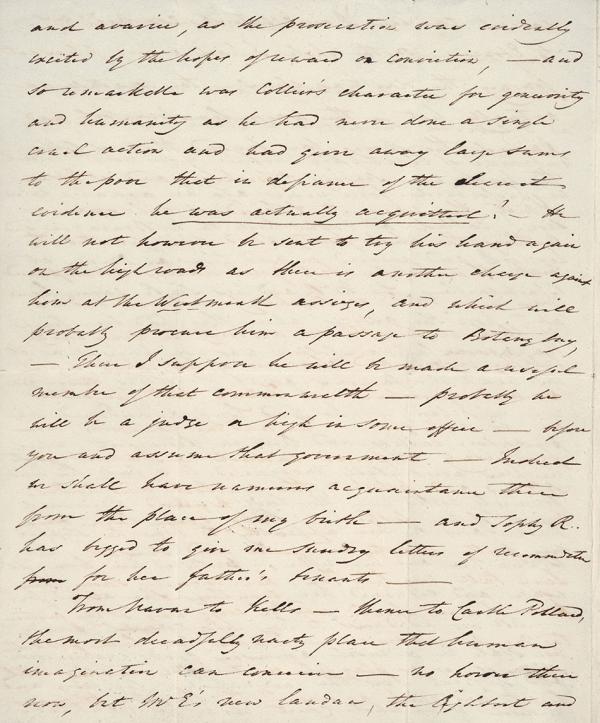 and avarice, as the prosecution was evidently
excited by the hopes of reward on conviction, — and
so remarkable was Collier's character for generosity
and humanity as he had never done a single
cruel action and had given away large sums
to the poor that in defiance of the clearest
evidence he was actually acquitted! — He
will not however be sent to try his hand again
on the high roads as there is another charge against
him at the Westmeath assizes, and which will
probably procure him a passage to Botany bay,
— There I suppose he will be made a useful
member of that commonwealth — probably he
will be a judge or high in some office — before
you and assume that government — Indeed
we shall have numerous acquaintance there
from the place of my birth — and Sophy R..
has begged to give me sundry letters of recommendation
for her father's tenants —
From Navan to Kells — thence to Castle Pollard,
the most dreadfully nasty place that human
imagination can conceive — no horses there
now, but Mr E's new landau, the lightest and